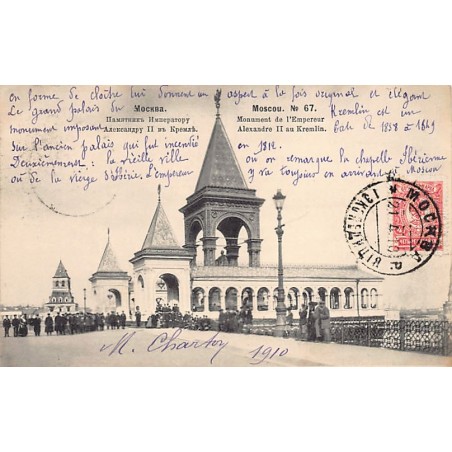 en forme de cloître lui donnent un aspect à la fois original et élégant
Le grand palais du Kremlin est un
monument imposant bati de 1838 à 1849
sur l'ancien palais qui fut incendié en 1812.
Deuxièmement: la vieille ville où on remarque la chapelle Ibérienne
ou de la vierge d'Ibérie. L'empereur y va toujours en arrivant à Moscou
Москва.
Памятникъ Императору
Александру II въ Кремлѣ.
Moscou. № 67.
Monument de l'Empereur
Alexandre II au Kremlin.
МОСКВА
M. Charloy 1910